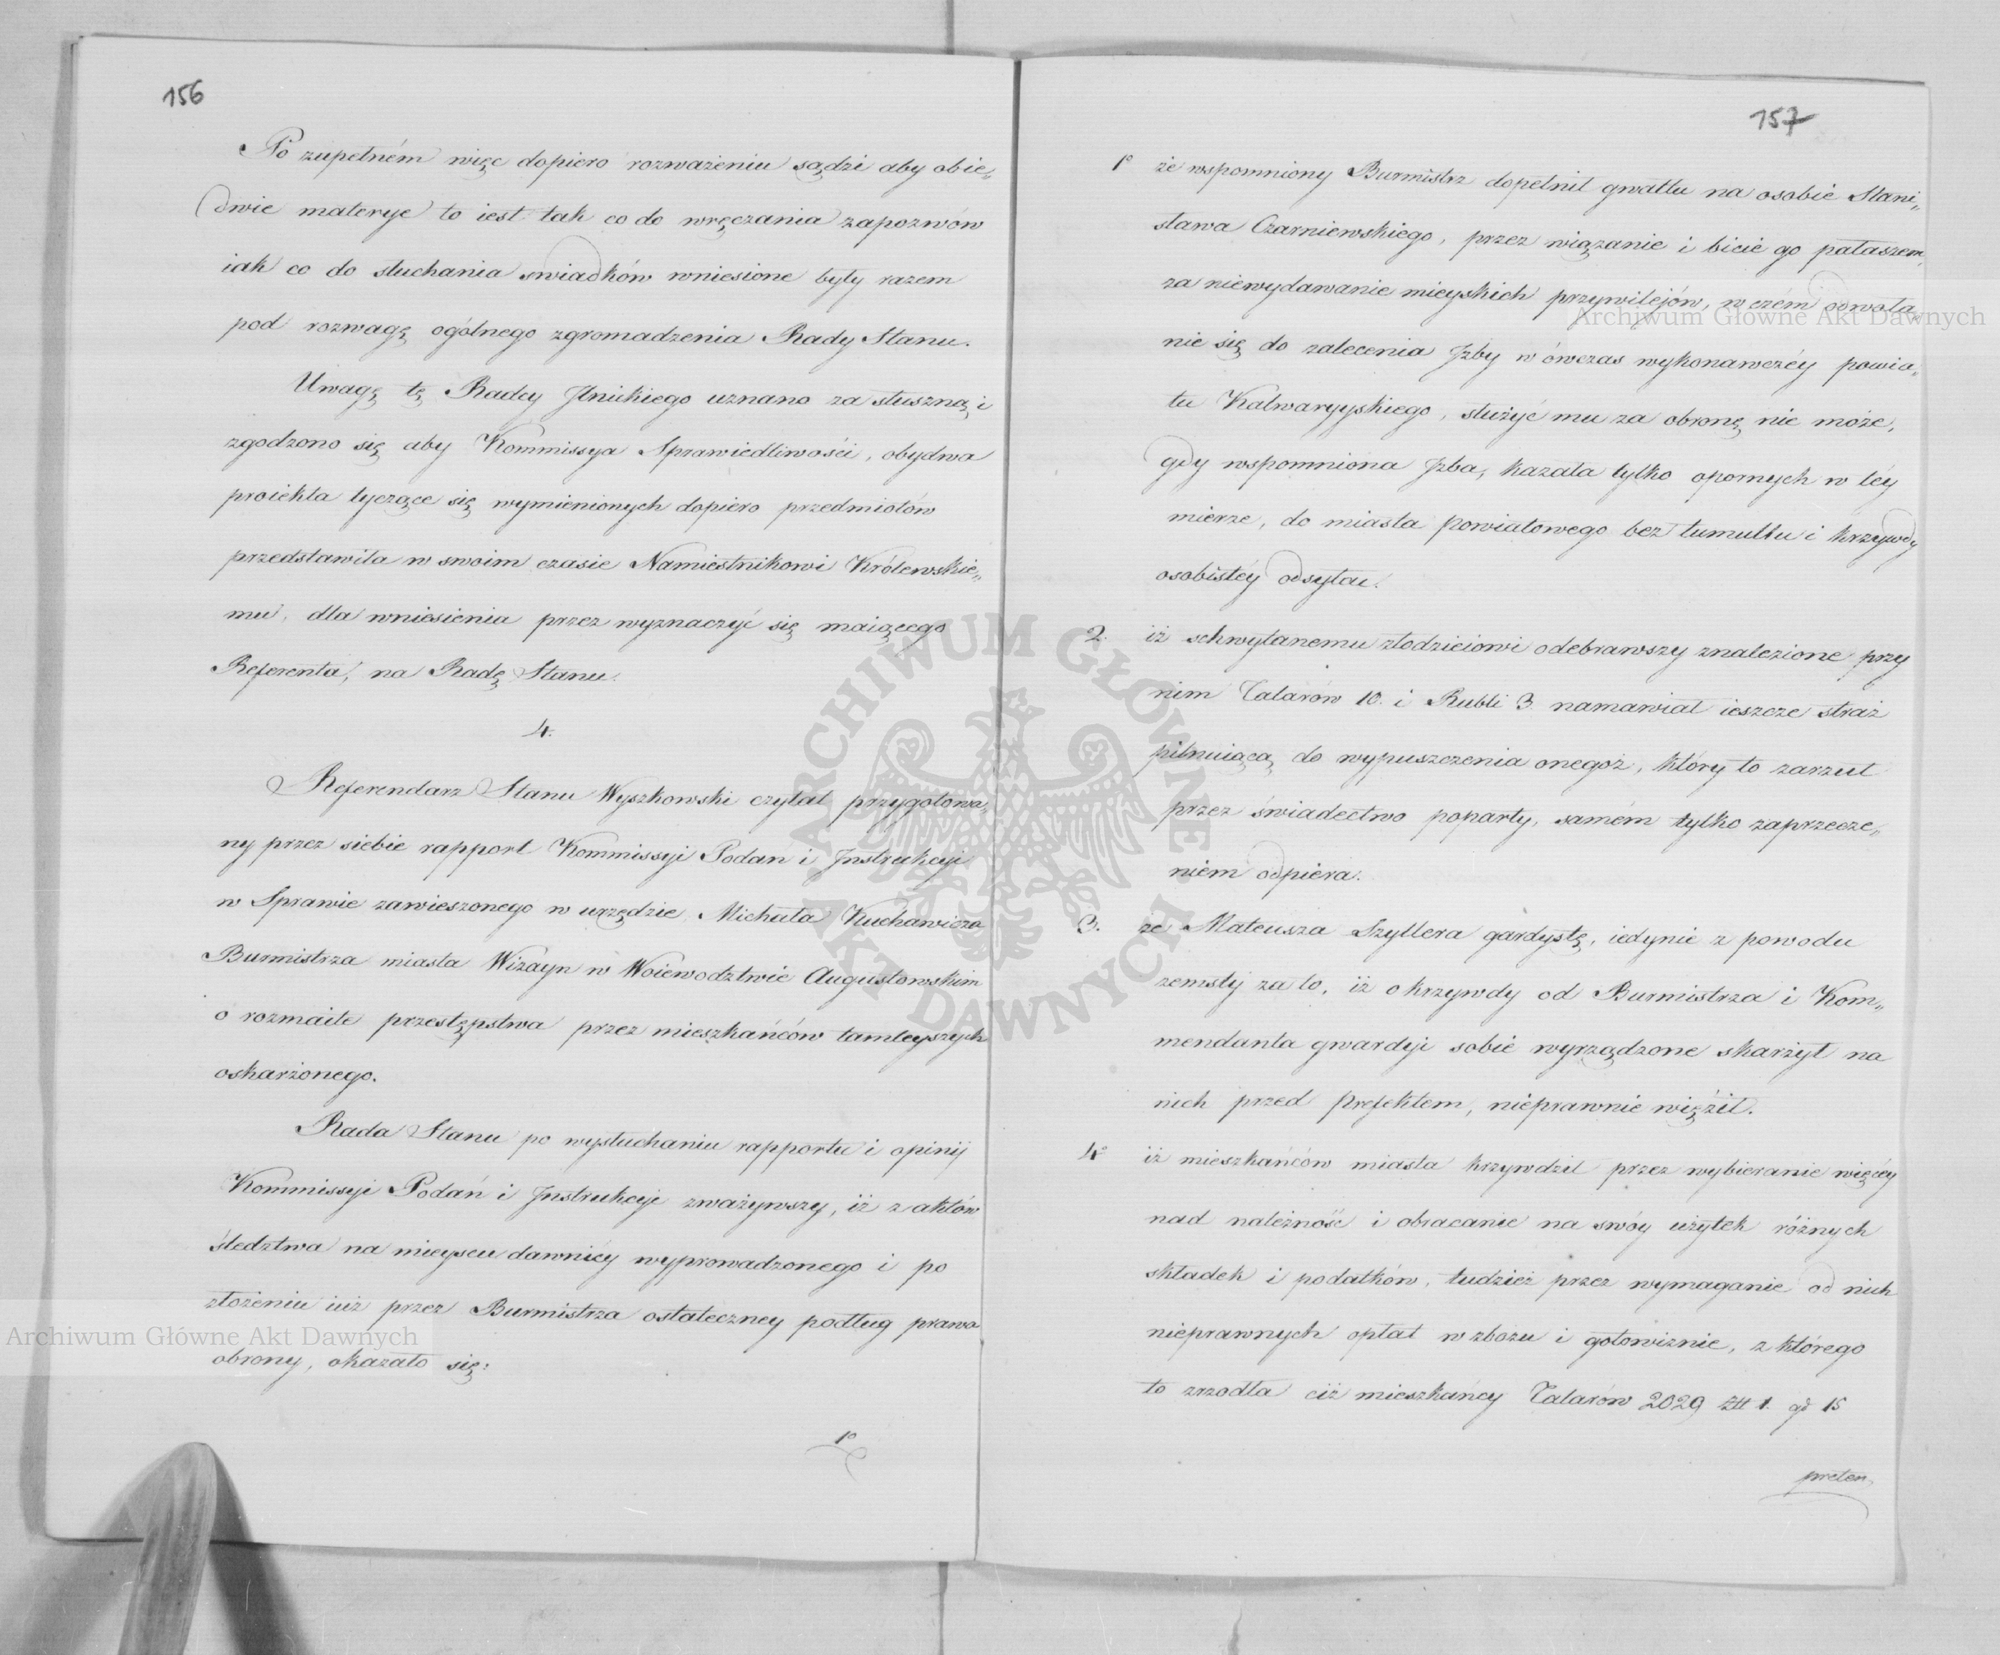 156
Po zupełném więc dopiero rozważeniu sądzi aby obie„
dwie materye to iest tak co do wręczania zapozwów
iak co do słuchania swiadków wniesione były razem
pod rozwagę ogólnego zgromadzenia Rady Stanu.
Uwagę tę Radcy Ilnickiego uznano za słuszną i
zgodzono się aby Kommissya Sprawiedliwości, obydwa
proiekta tyczące się wymienionych dopiero przedmiotów
przedstawiła w swoim czasie Namiestnikowi Królewskie„
mu, dla wniesienia przez wyznaczyć się maiącego
Referenta, na Radę Stanu.
4.
Referendarz Stanu Wyszkowski czytał przygotowa„
ny przez siebie rapport Kommissyi Podań i Instrukcyi
w Sprawie zawieszonego w urzędzie Michała Kuchawicza
Burmistrza miasta Wizayn w Woiewodztwie Augustowskim
o rozmaite przestępstwa przez mieszkańców tamteyszych
oskarżonego.
Rada Stanu po wysłuchaniu rapportu i opinij
Kommissyi Podań i Instrukcyi zważywszy, iż z aktów
śledztwa na mieyscu dawniéy wyprowadzonego i po
złożeniu iuż przez Burmistrza ostateczney podług prawa
obrony, okazało się:
1º
157
1º że wspomniony Burmistrz dopełnił gwałtu na osobie Stani„
sława Czarniewskiego, przez wiązanie i bicie go pałaszem,
za niewydawanie mieyskich przywilejów, w czém odwoła„
nie się do zalecenia Izby w ówczas wykonawczéy powia„
tu Kalwaryyskiego, służyć mu za obronę nie może,
gdy wspomniona Izba, kazała tylko opornych w téy
mierze, do miasta powiatowego bez tumultu i krzywdy
osobistéy odsyłać.
2. iż schwytanemu złodzieiowi odebrawszy znalezione przy
nim Talarów 10. i Rubli 3 namawiał ieszcze straż
pilnuiącą do wypuszczenia onegoż, który to zarzut
przez świadectwo poparty, samém tylko zaprzecze„
niem odpiera.
3. że Mateusza Szyllera gardystę, iedynie z powodu
zemsty za to, iż o krzywdy od Burmistrza i Kom„
mendanta gwardyi sobie wyrządzone skarżył na
nich przed Prefektem, nieprawnie więził.
4º iż mieszkańców miasta krzywdził przez wybieranie więcéy
nad należność i obracanie na swóy użytek różnych
składek i podatków, tudzież przez wymaganie od nich
nieprawnych opłat w zbożu i gotowiznie, z którego
to zrzodła ciż mieszkańcy Talarów 2029 Złł 1. gr 15
preten„
Archiwum Główne Akt Dawnych
Archiwum Główne Akt Dawnych
ARCHIWUM GŁÓWNE AKT DAWNYCH